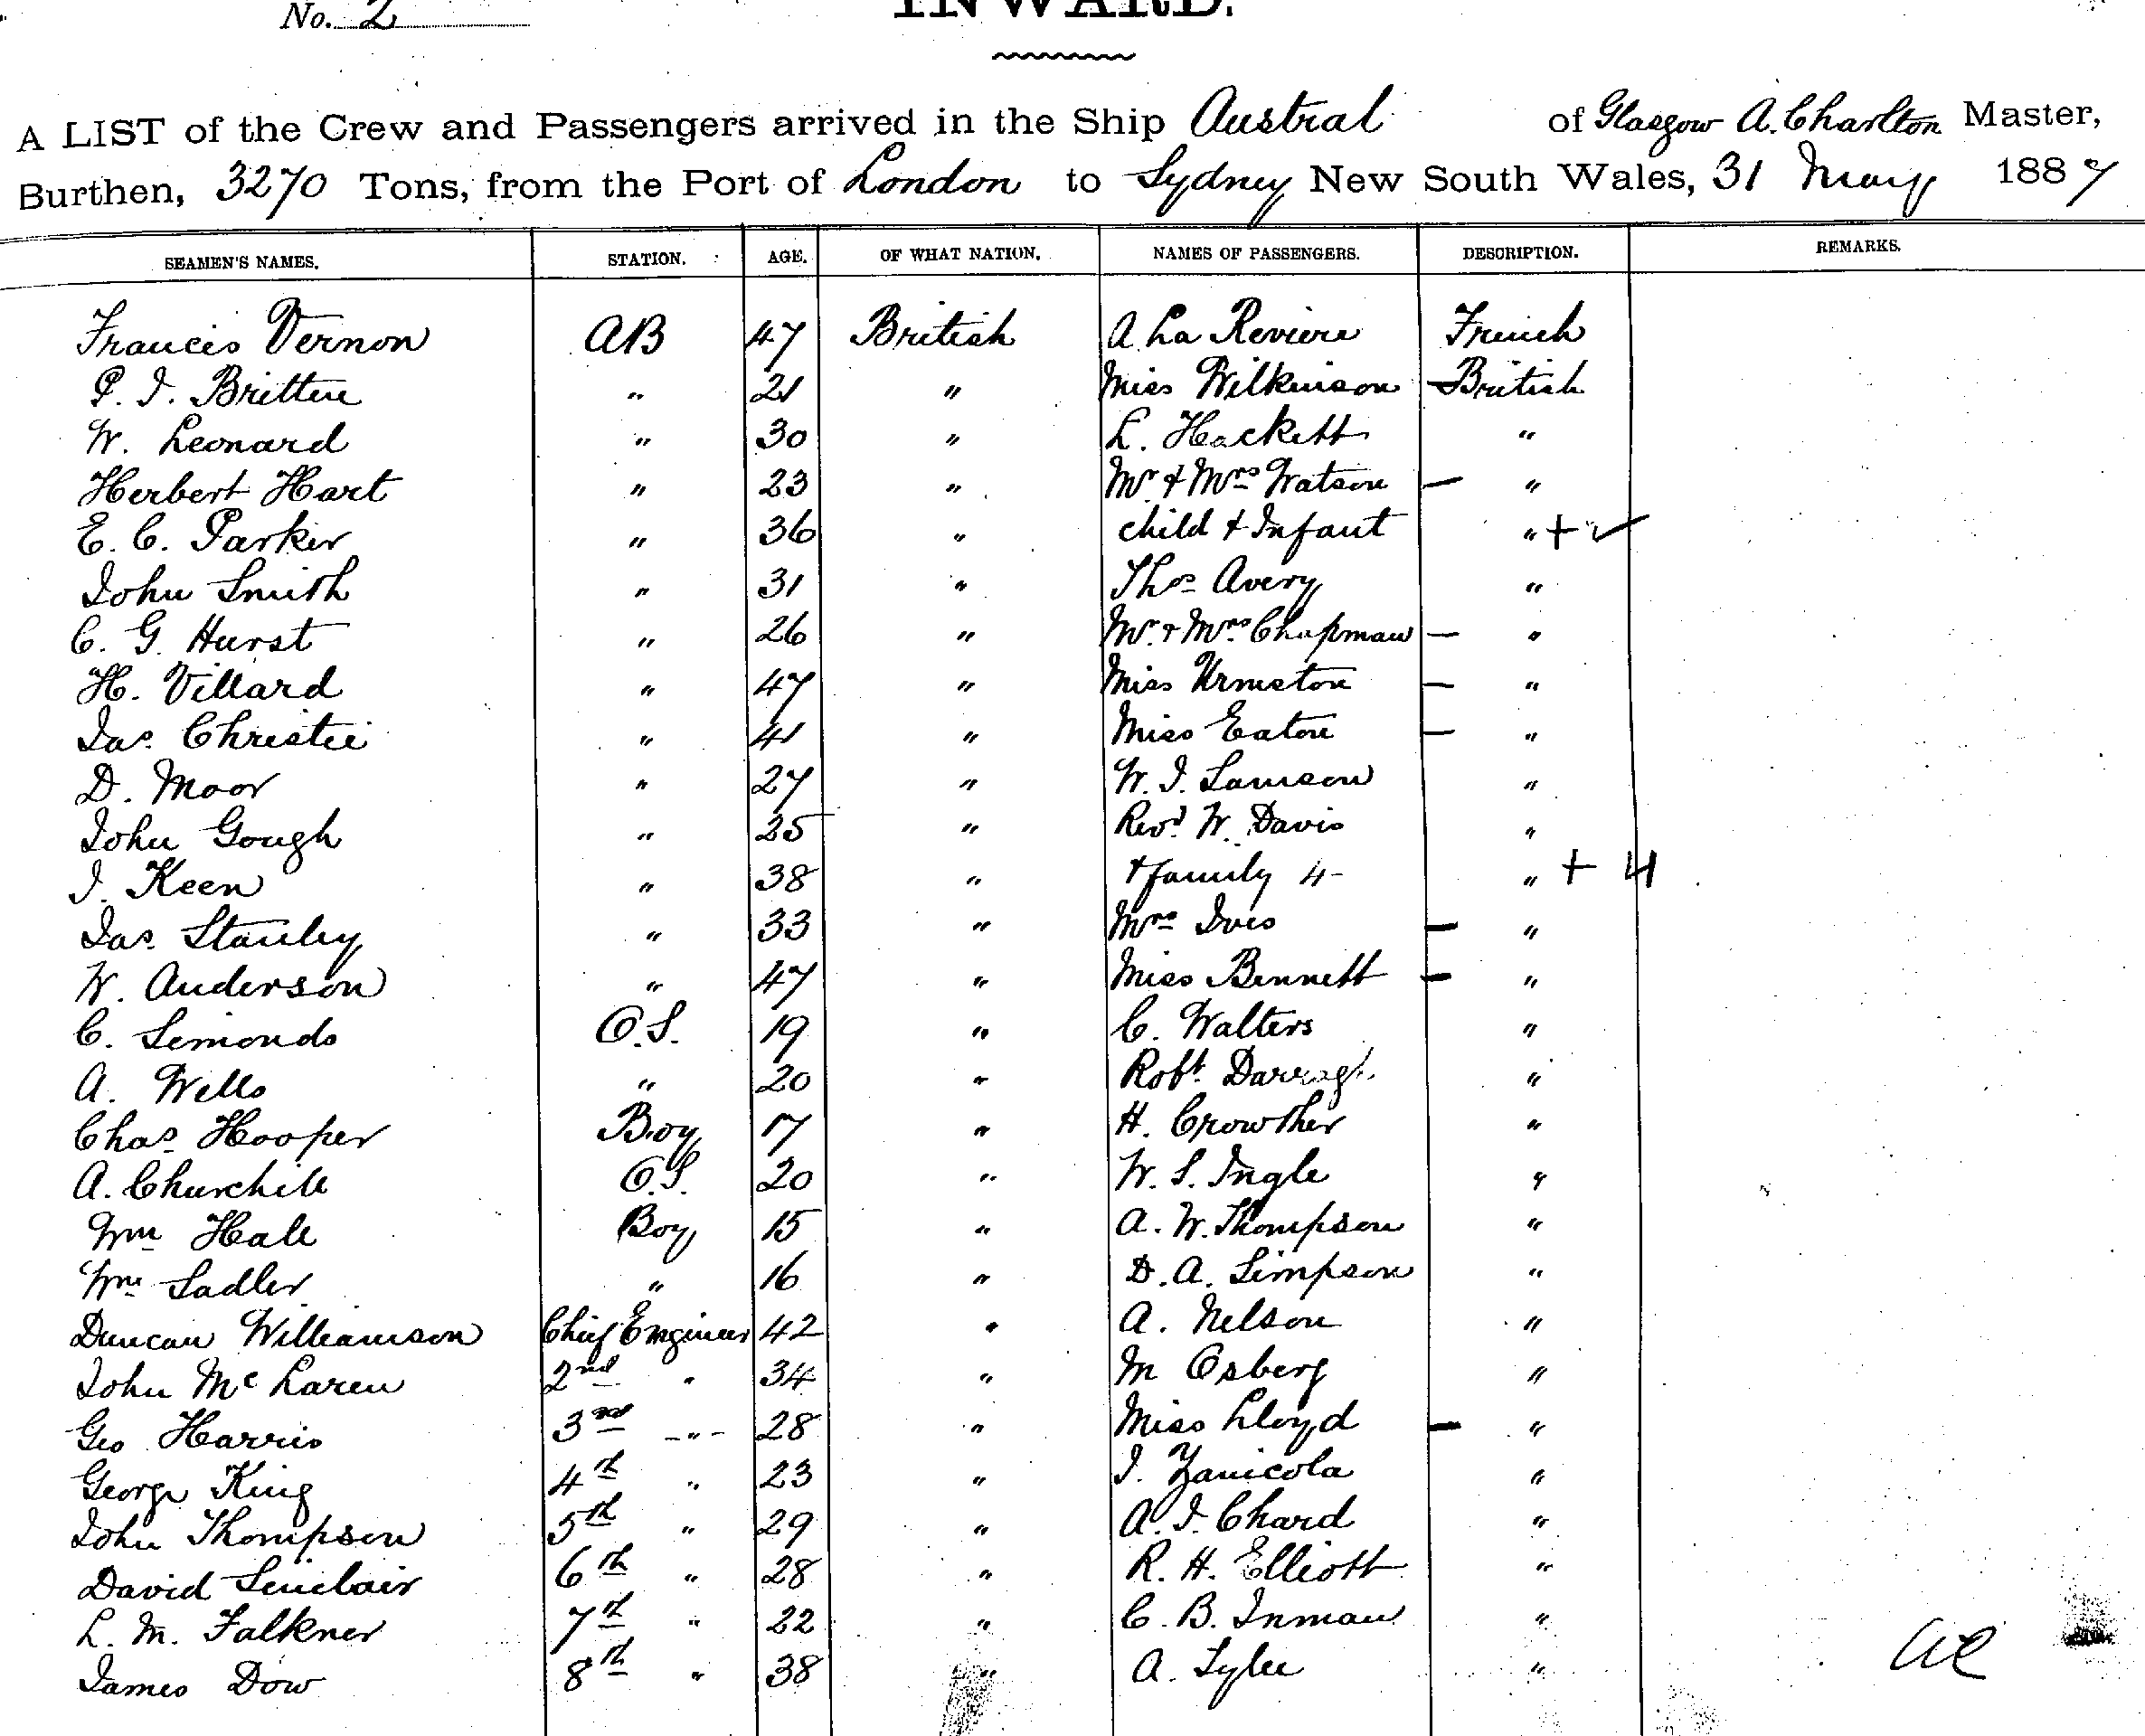 No. 2
INWARD.
A LIST of the Crew and Passengers arrived in the Ship Austral of Glasgow A. Charlton Master,
Burthen, 3270 Tons, from the Port of London to Sydney New South Wales, 31 May 1887
SEAMEN'S NAMES. STATION. AGE. OF WHAT NATION. NAMES OF PASSENGERS. DESCRIPTION. REMARKS.
Francis Vernon AB 47 British A La Reviere French
P. J. Britten " 21 " Miss Wilkinson British
W. Leonard " 30 " L. Hackett "
Herbert Hart " 23 " Mr & Mrs Watson — "
E. C. Parker " 36 " child & Infant " + ✓
John Smith " 31 " Thos Avery "
C. G. Hurst " 26 " Mr & Mrs Chapman — "
H. Villard " 47 " Miss Urmston — "
Jas. Christie " 41 " Miss Eaton — "
D. Moor " 27 " W. J. Lamson "
John Gough " 25 " Revd W. Davis "
J. Keen " 38 " & family 4 " + 4
Jas. Stanley " 33 " Mrs Ives — "
W. Anderson " 47 " Miss Bennett — "
C. Simonds O.S. 19 " C. Walters "
A. Wells " 20 " Robt. Darragh "
Chas Hooper Boy 17 " H. Crowther "
A. Churchill O.S. 20 " W. S. Ingle "
Wm Hale Boy 15 " A. W. Thompson "
Wm Sadler " 16 " D. A. Simpson "
Duncan Williamson Chief Engineer 42 " A. Nelson "
John McLaren 2nd " 34 " M Osberg "
Geo Harris 3rd " 28 " Miss Lloyd — "
George King 4th " 23 " J. Zanicola "
John Thompson 5th " 29 " A. J. Chard "
David Sinclair 6th " 28 " R. H. Elliott "
L. M. Falkner 7th " 22 " C. B. Inman "
James Dow 8th " 38 " A. Tylee "